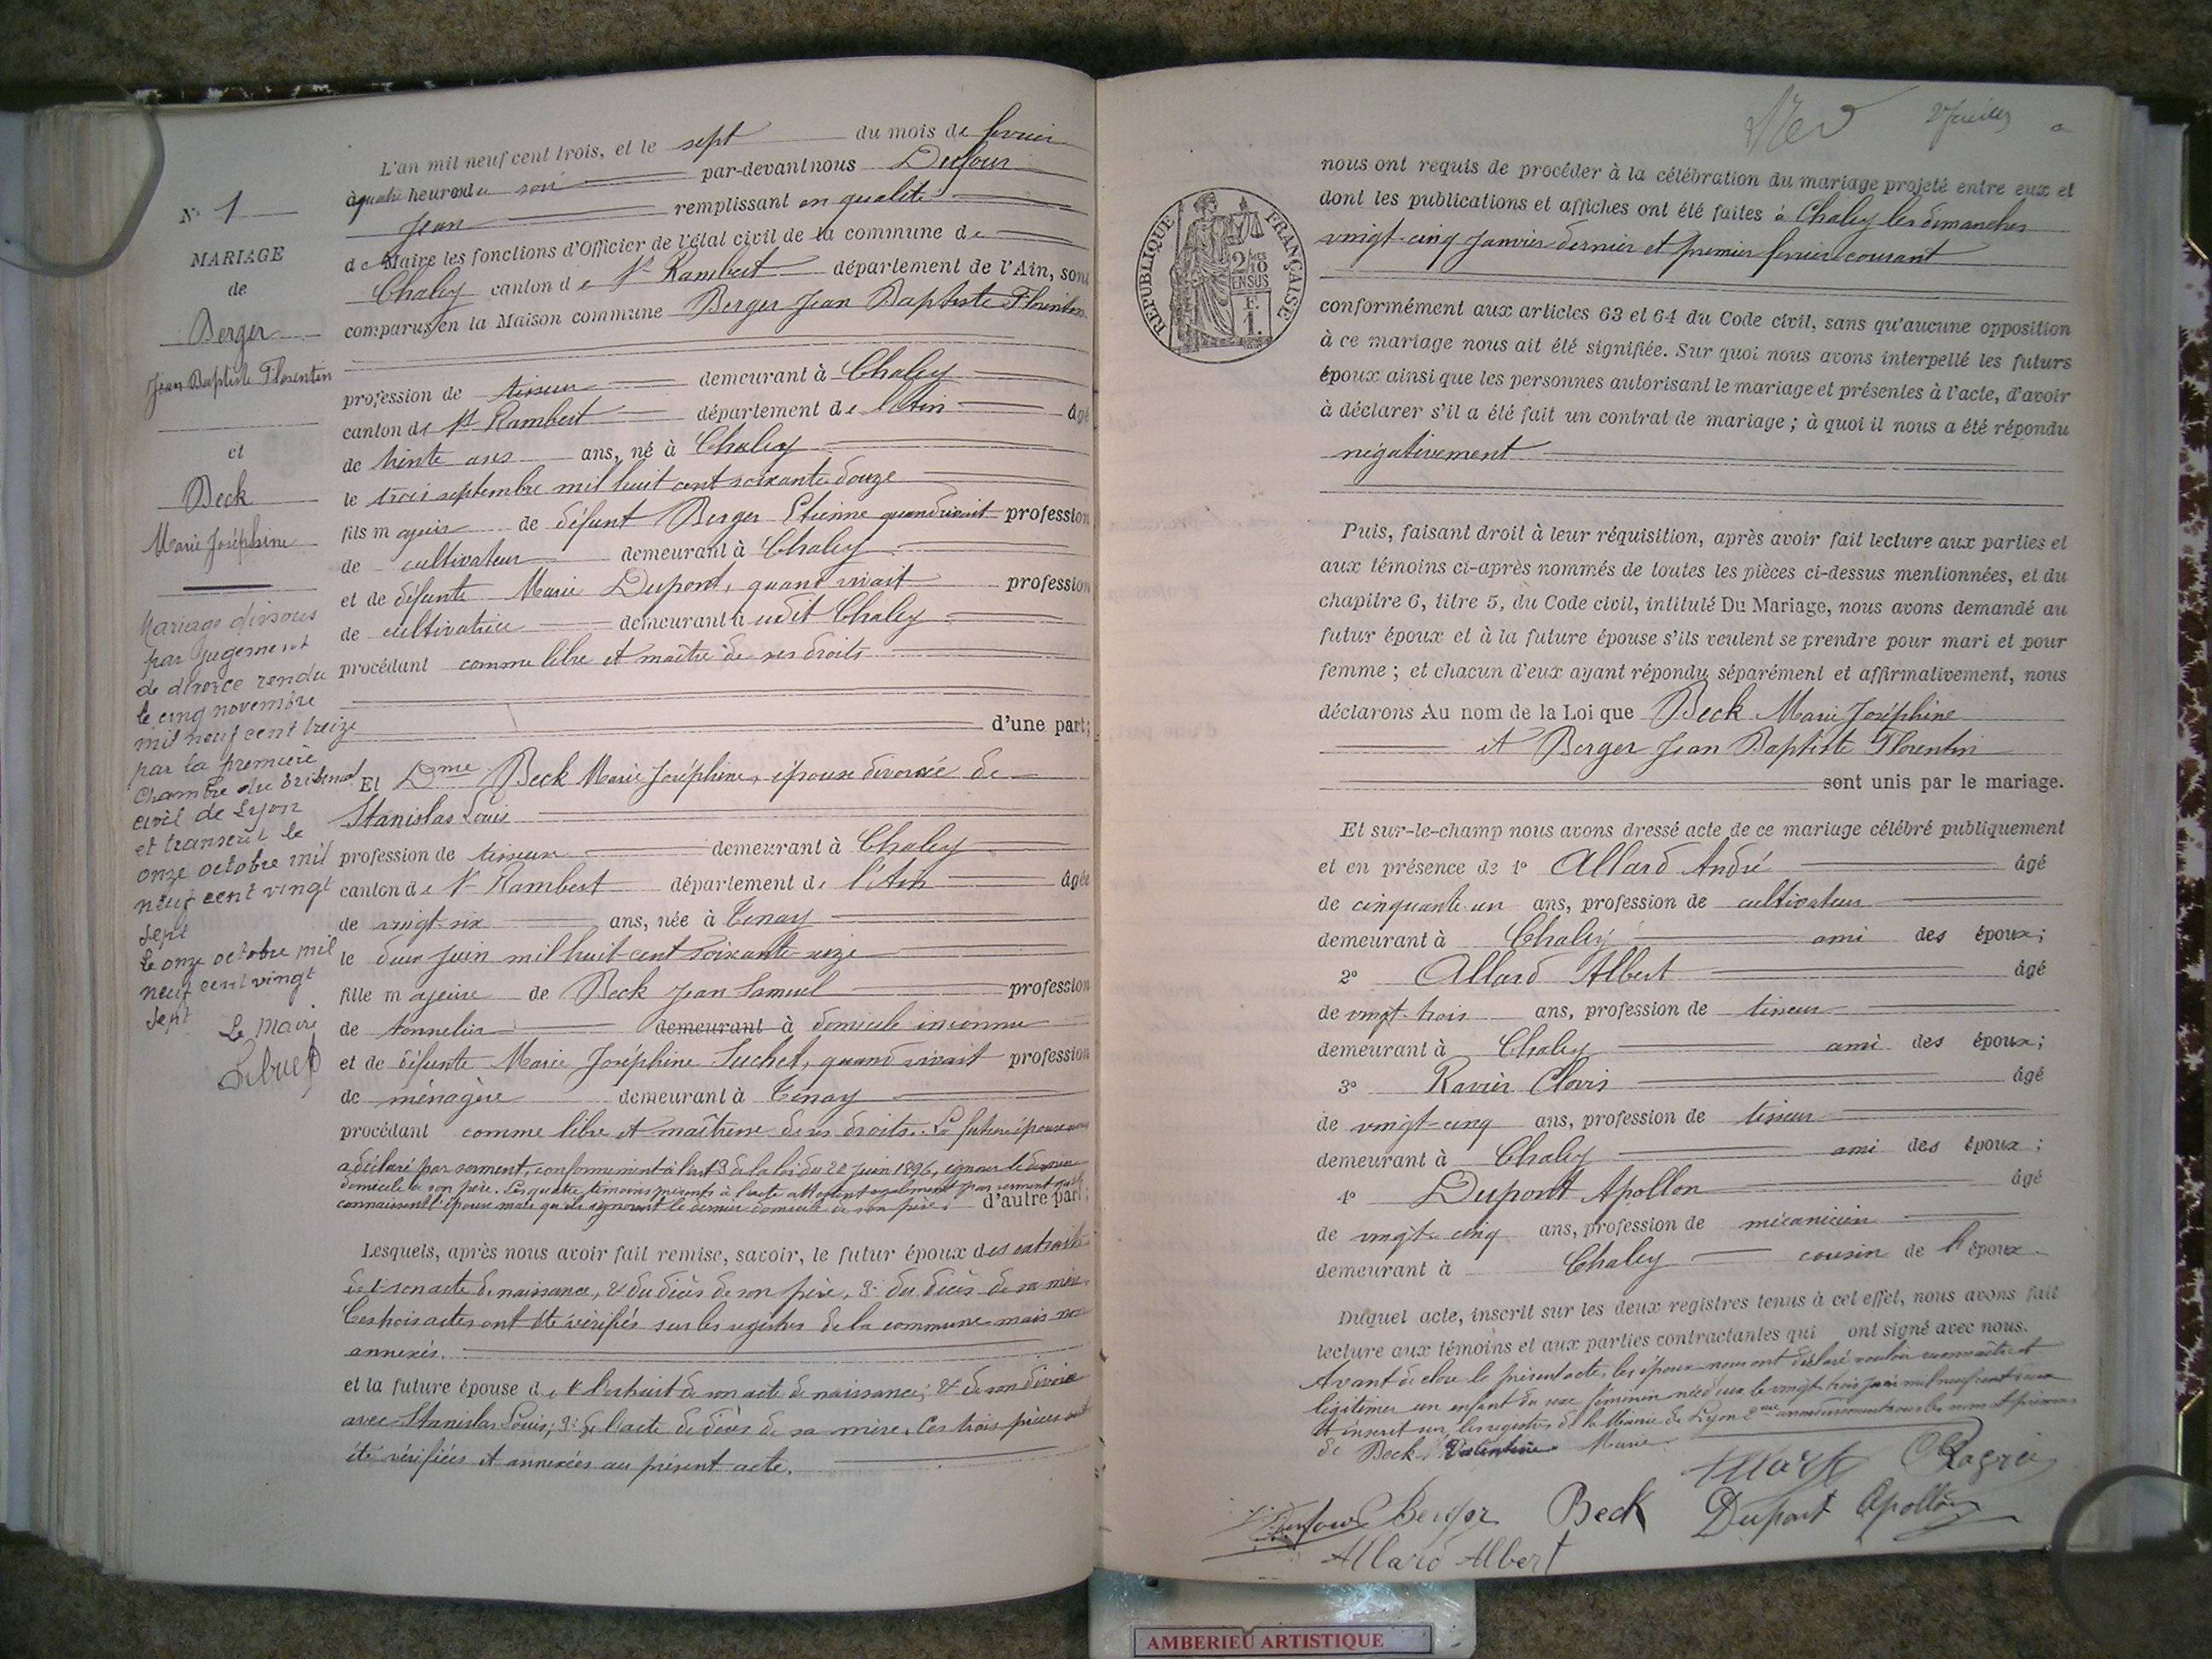 N° 1
MARIAGE
de
Berger
Jean Baptiste Florentin
et
Beck
Marie Joséphine
Mariage dissous
par jugement
de divorce rendu
le cinq novembre
mil neuf cent treize
par la première
chambre du tribunal
civil de Lyon
et transcrit le
onze octobre mil
neuf cent vingt
sept
Le onze octobre mil
neuf cent vingt
sept
Le Maire
L'an mil neuf cent trois, et le sept du mois de fevrier
à quatre heures du soir par-devant nous Dufour
Jean remplissant en qualité
de Maire les fonctions d'Officier de l'état civil de la commune de
Chaley canton de St Rambert département de l'Ain, sont
comparus en la Maison commune Berger Jean Baptiste Florentin
profession de tisseur demeurant à Chaley
canton de St Rambert département de l'Ain âgé
de trente ans ans, né à Chaley
le trois septembre mil huit cent soixante douze
fils majeur de défunt Berger Etienne quand vivait profession
de cultivateur demeurant à Chaley
et de défunte Marie Dupont, quand vivait profession
de cultivatrice demeurant à udit Chaley
procédant comme libre et maître de ses droits
d'une part;
Et Dme Beck Marie Joséphine, épouse divorcée de
Stanislas Louis
profession de tisseur demeurant à Chaley
canton de St Rambert département de l'Ain âgée
de vingt-six ans, née à Tenay
le deux juin mil huit-cent soixante-seize
fille majeure de Beck Jean Samuel profession
de tonnelier demeurant à domicile inconnu
et de défunte Marie Joséphine Suchet, quand vivait profession
de ménagère demeurant à Tenay
procédant comme libre et maîtresse de ses droits. La future épouse nous
a déclaré par serment, conformément à l'art 3 de la loi du 20 juin 1896, ignorer le dernier
domicile de son père. Les quatre témoins présents à l'acte attestent également par serment qu'ils
connaissent l'épouse mais qu'ils ignorent le dernier domicile de son père. d'autre part;
Lesquels, après nous avoir fait remise, savoir, le futur époux des extraits
de 1° son acte de naissance, 2° du décès de son père, 3° du décès de sa mère.
Ces trois actes ont été vérifiés sur les registres de la commune mais non
annexés.
et la future épouse de 1° l'extrait de son acte de naissance; 2° de son divorce
avec Stanislas Louis; 3° de l'acte de décès de sa mère. Ces trois pièces ont
été vérifiées et annexées au présent acte.
REPUBLIQUE FRANÇAISE
2/10
EN SUS
F.
1.
nous ont requis de procéder à la célébration du mariage projeté entre eux et
dont les publications et affiches ont été faites à Chaley les dimanches
vingt-cinq janvier dernier et premier fevrier courant
conformément aux articles 63 et 64 du Code civil, sans qu'aucune opposition
à ce mariage nous ait été signifiée. Sur quoi nous avons interpellé les futurs
époux ainsi que les personnes autorisant le mariage et présentes à l'acte, d'avoir
à déclarer s'il a été fait un contrat de mariage ; à quoi il nous a été répondu
négativement
Puis, faisant droit à leur réquisition, après avoir fait lecture aux parties et
aux témoins ci-après nommés de toutes les pièces ci-dessus mentionnées, et du
chapitre 6, titre 5, du Code civil, intitulé Du Mariage, nous avons demandé au
futur époux et à la future épouse s'ils veulent se prendre pour mari et pour
femme ; et chacun d'eux ayant répondu séparément et affirmativement, nous
déclarons Au nom de la Loi que Beck Marie Joséphine
et Berger Jean Baptiste Florentin
sont unis par le mariage.
Et sur-le-champ nous avons dressé acte de ce mariage célébré publiquement
et en présence de 1° Allard André âgé
de cinquante un ans, profession de cultivateur
demeurant à Chaley ami des époux;
2° Allard Albert âgé
de vingt-trois ans, profession de tisseur
demeurant à Chaley ami des époux;
3° Ravier Clovis âgé
de vingt-cinq ans, profession de tisseur
demeurant à Chaley ami des époux;
4° Dupont Apollon âgé
de vingt-cinq ans, profession de mécanicien
demeurant à Chaley cousin de l'époux
Duquel acte, inscrit sur les deux registres tenus à cet effet, nous avons fait
lecture aux témoins et aux parties contractantes qui ont signé avec nous.
Avant de clore le présent acte, les époux nous ont déclaré vouloir reconnaître et
légitimer un enfant du sexe féminin né d'eux le vingt trois juin mil neuf cent
et inscrit sur les registres de la Mairie de Lyon 2me arrondissement sous les nom et prénoms
de Beck Valentine Marie
Dufour Berger Beck Dupont Apollon
Allard Albert
AMBERIEU ARTISTIQUE